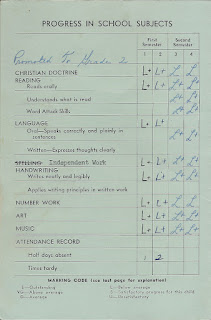 PROGRESS IN SCHOOL SUBJECTS
First Semester Second Semester
Promoted To Grade 2
1 2 3 4
CHRISTIAN DOCTRINE L+ L+ L L
READING
Reads orally L+ L+ L L
Understands what is read L+ L+
Word Attack Skills L+ L+
LANGUAGE L+ L+
Oral—Speaks correctly and plainly in
sentences L+ L+
Written—Expresses thoughts clearly
SPELLING Independent Work L+ L+ L L
HANDWRITING
Writes neatly and legibly L+ L+ L+ L+
Applies writing principles in written work
NUMBER WORK L+ L+ L L
ART L+ L+ L+ L+
MUSIC L+ L+ L+ L+
ATTENDANCE RECORD
Half days absent 1 2
Times tardy
MARKING CODE (see last page for explanation)